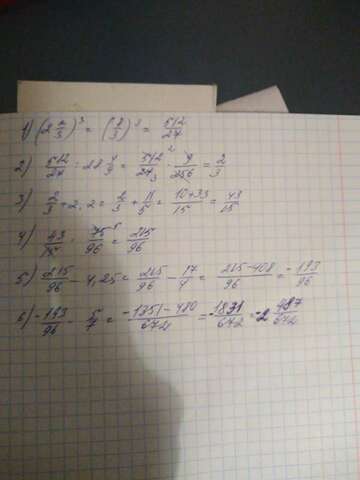 1) (2 2/3)³ = (8/3)³ = 512/27
2) 512/27 : 28 4/9 = 512/27 · 9/256 = 2/3
3) 2/3 + 2,2 = 2/3 + 11/5 = 10+33/15 = 43/15
4) 43/15 · 75/96 = 215/96
5) 215/96 - 4,25 = 215/96 - 17/4 = 215-408/96 = -193/96
6) -193/96 - 5/7 = -1351-480/672 = -1831/672 = -2 487/672